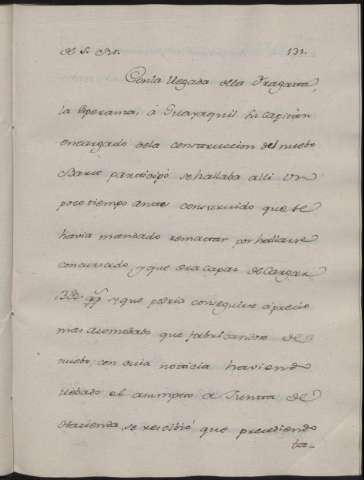 131.
Con la llegada dela Fragata,
la Esperanza, á Guayaquil su Capitan
encargado dela construccion del nuebo
Barco participó se hallaba alli un
poco tiempo antes construido que se
havia mandado rematar por hallarse
concursado, y que era capaz de Cargar
y que podria conseguirse á precio
mas acomodado que fabricandose de
nuebo, con cuia noticia haviend
llebado el asumpto a Junta de
Hacienda se resolbió que precediendo